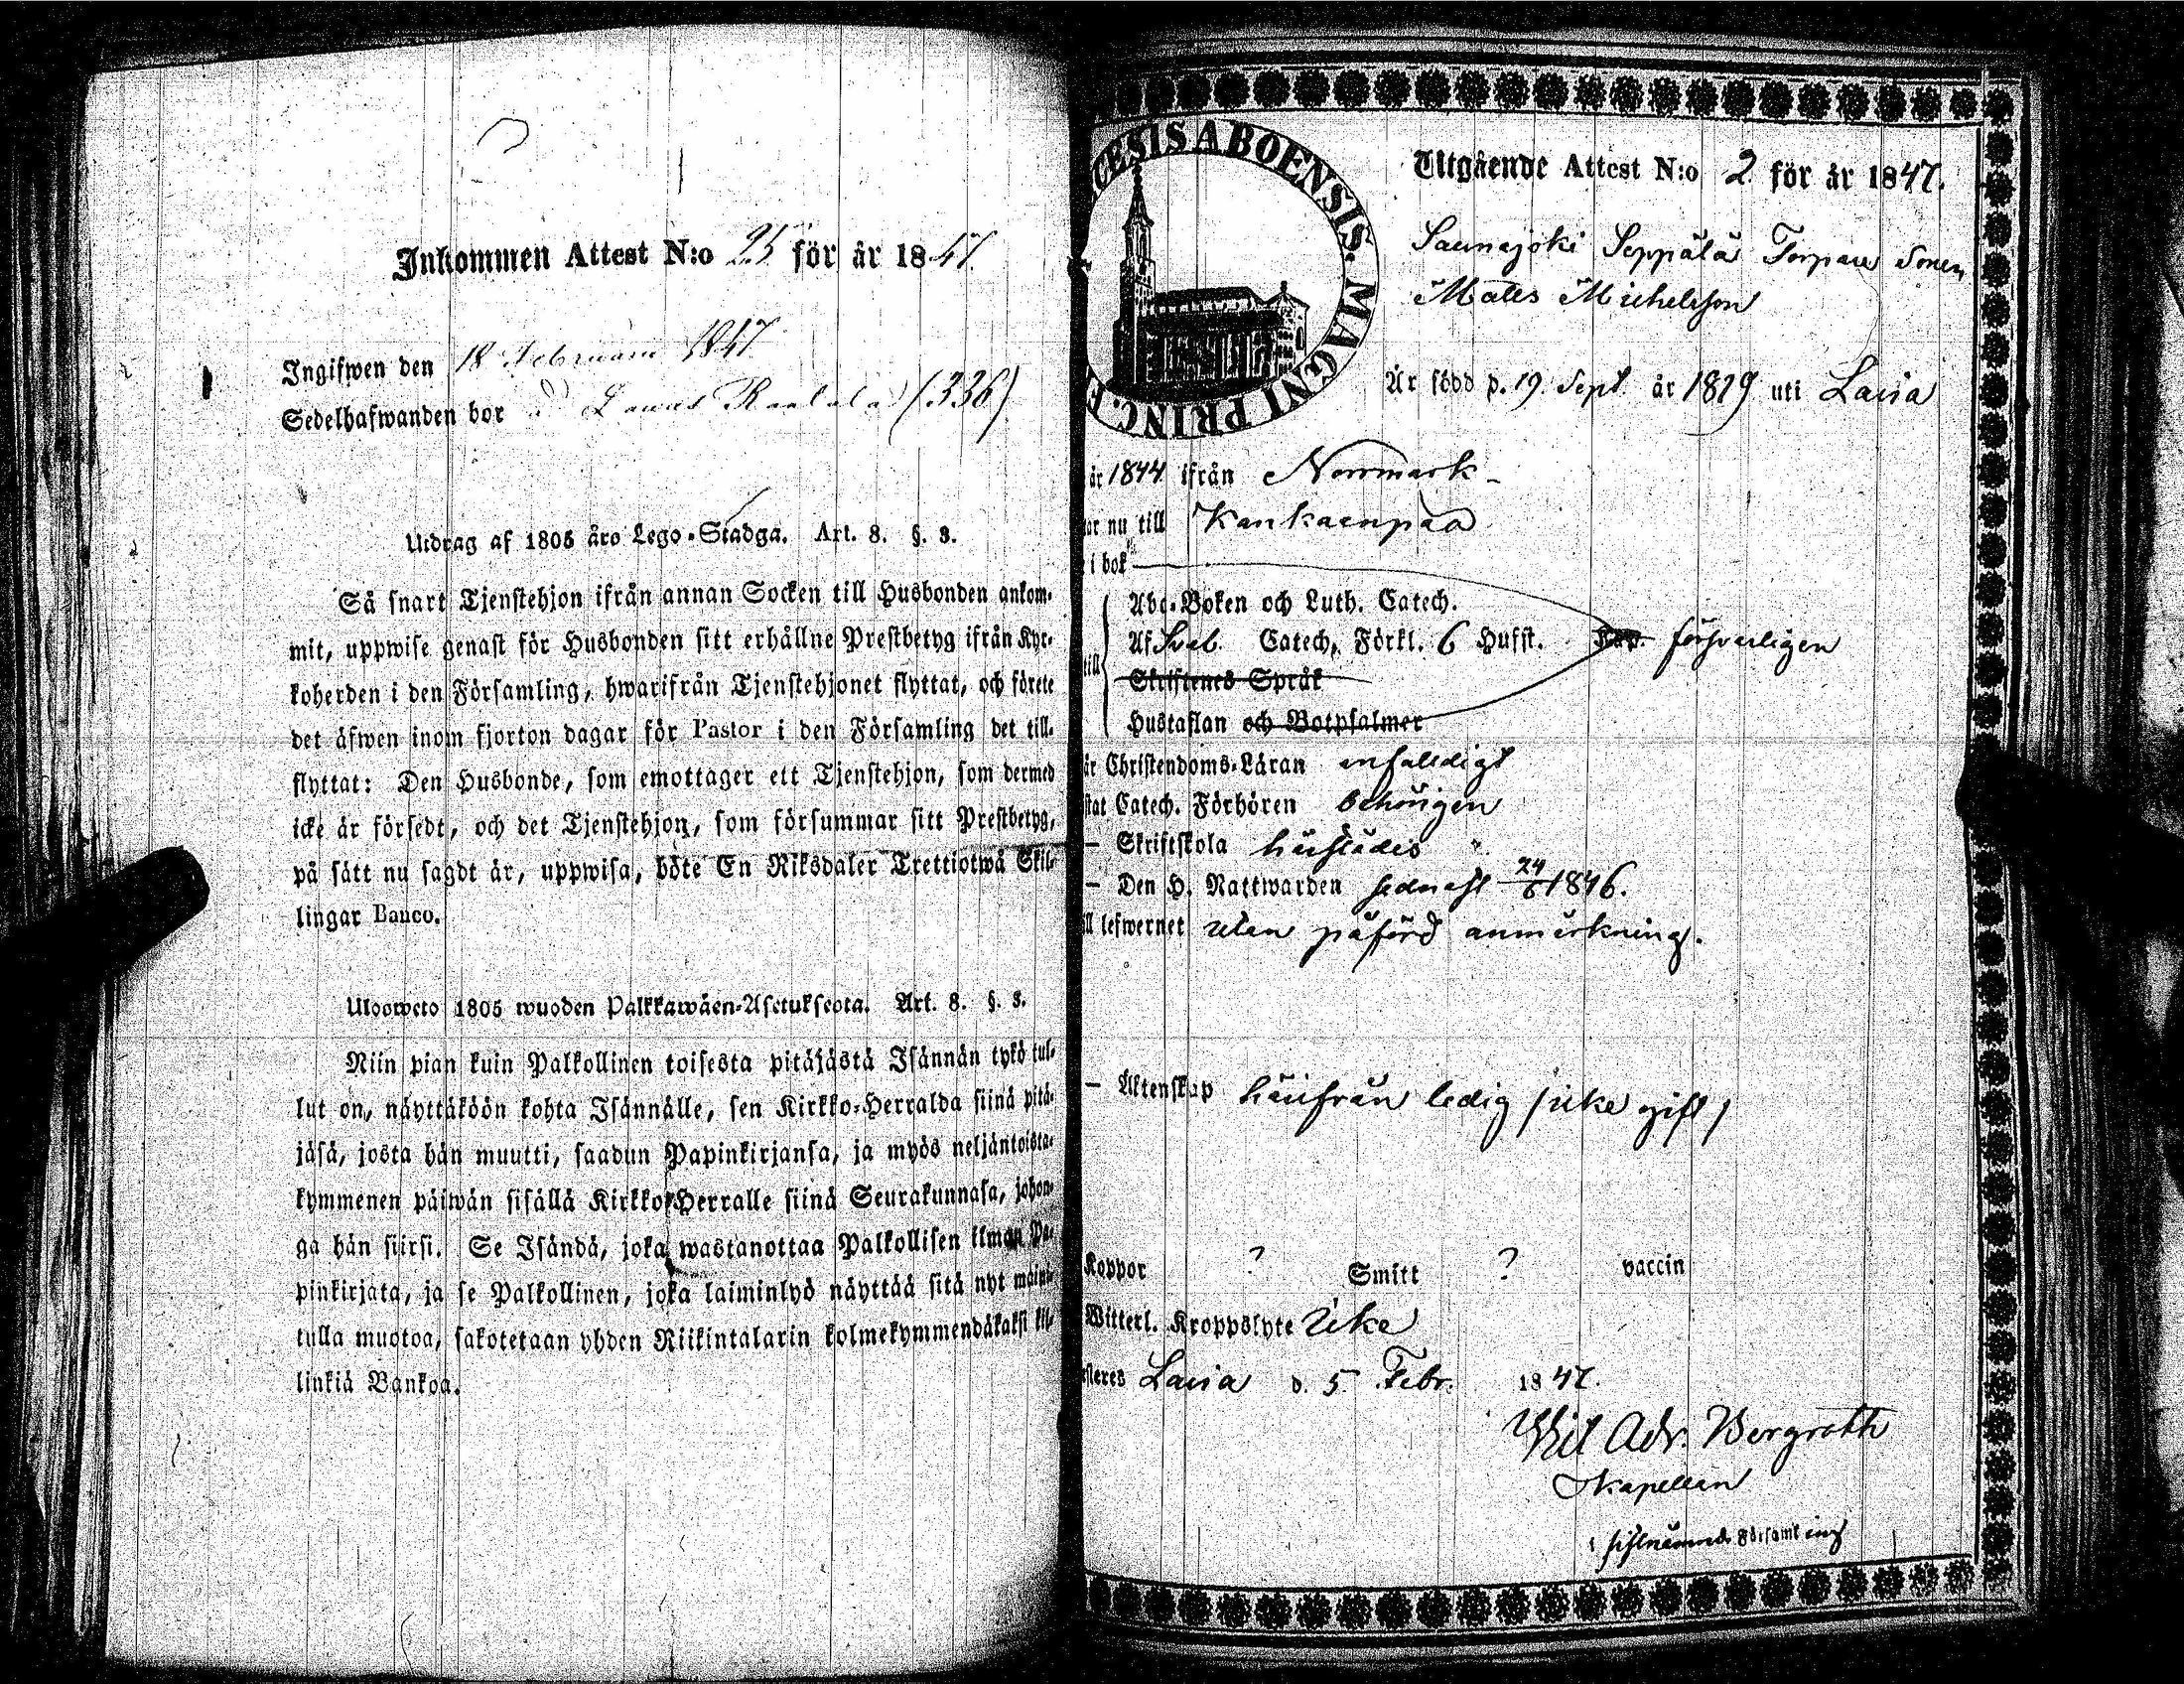 Inkommen Attest N:o 25 för år 1847.
Ingifwen den 18 Februarii 1847
Sedelhafwanden bor å (336)
Utdrag af 1805 års Lego-Stadga. Art. 8. §. 3.
Så snart Tjenstehjon ifrån annan Socken till Husbonden ankom-
mit, uppwise genast för Husbonden sitt erhållne Prestbetyg ifrån Kyr-
koherden i den Församling, hwarifrån Tjenstehjonet flyttat, och förete
det äfwen inom fjorton dagar för Pastor i den Församling det till-
flyttat: Den Husbonde, som emottager ett Tjenstehjon, som dermed
icke är försedt, och det Tjenstehjon, som försummar sitt Prestbetyg,
på sätt nu sagdt är, uppwisa, böte En Riksdaler Trettiotwå Skil-
lingar Banco.
Ulosweto 1805 wuoden Palkkawäen-Asetuksesta. Art. 8. §. 3.
Niin pian kuin Palkollinen toisesta pitäjästä Isännän tykö tul-
lut on, näyttäköön kohta Isännälle, sen Kirkko-Herralda siinä pitä-
jäsä, josta hän muutti, saadun Papinkirjansa, ja myös neljäntoista-
kymmenen päiwän sisällä Kirkko-Herralle siinä Seurakunnasa, johon-
ga hän siirsi. Se Isändä, joka wastanottaa Palkollisen ilman Pa-
pinkirjata, ja se Palkollinen, joka laiminlyö näyttää sitä nyt maini-
tulla muotoa, sakotetaan yhden Riikintalarin kolmekymmendäkaksi kil-
linkiä Bankoa.
CESIS ABOENSIS. MAGNI PRINC. F
Utgående Attest N:o 2 för år 1847.
Saunajoki Seppälä Torpare Sonen
Mats Michelsson
Är född d. 19 Sept. år 1819 uti Lavia
år 1844 ifrån Norrmark
nu till Kankaenpää
i bok
Abc-Boken och Luth. Catech.
Af Sveb. Catech. Förkl. 6 Hufst. försvarligen
Skriftenes Språk
Hustaflan och Botpsalmer
Christendoms-Läran enfaldigt
Catech. Förhören behörigen
— Skriftskola härstädes
— Den H. Nattwarden sednast 24/6 1846.
lefwernet utan påförd anmärkning.
— Äktenskap härifrån ledig (icke gift)
Koppor ? Smitt ? vaccin
Witterl. Kroppslyte Icke
Lavia d. 5 Febr. 1847.
Wil Adr. Bergroth
Kapellan
i sistnämnde Församling